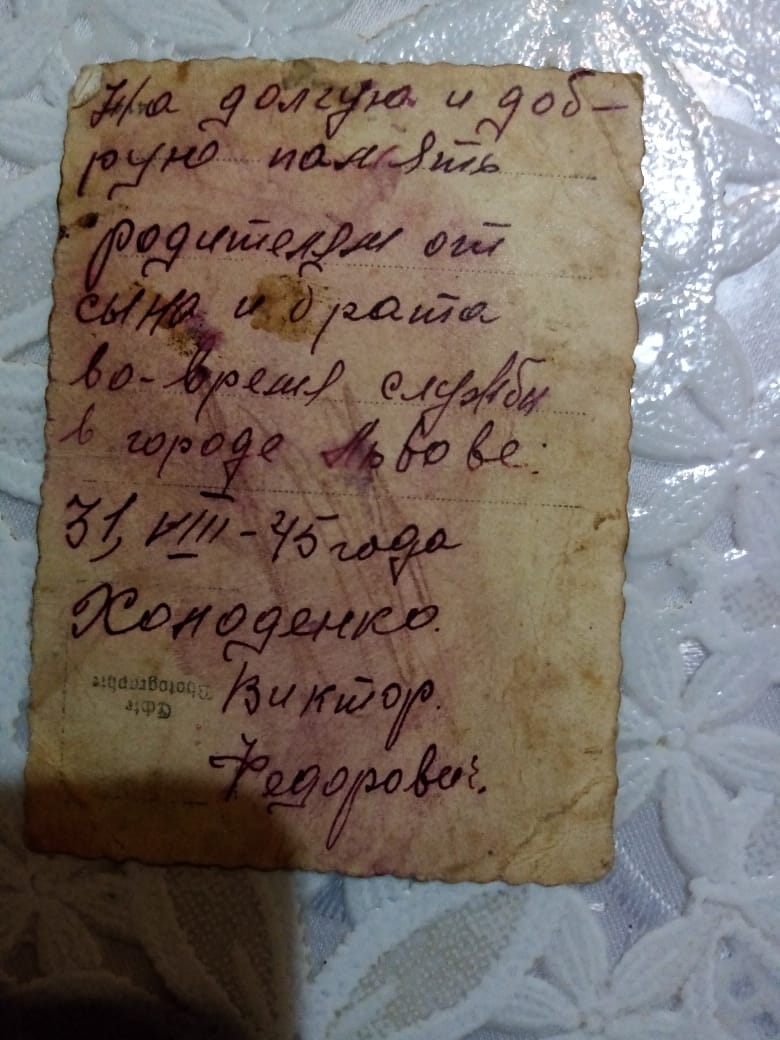 На долгую и доб-
рую память
родителям от
сына и брата
во-время службы
в городе Львове.
31, VIII - 45 года
Холоденко.
Виктор.
Федорович.
Echte
Photographie